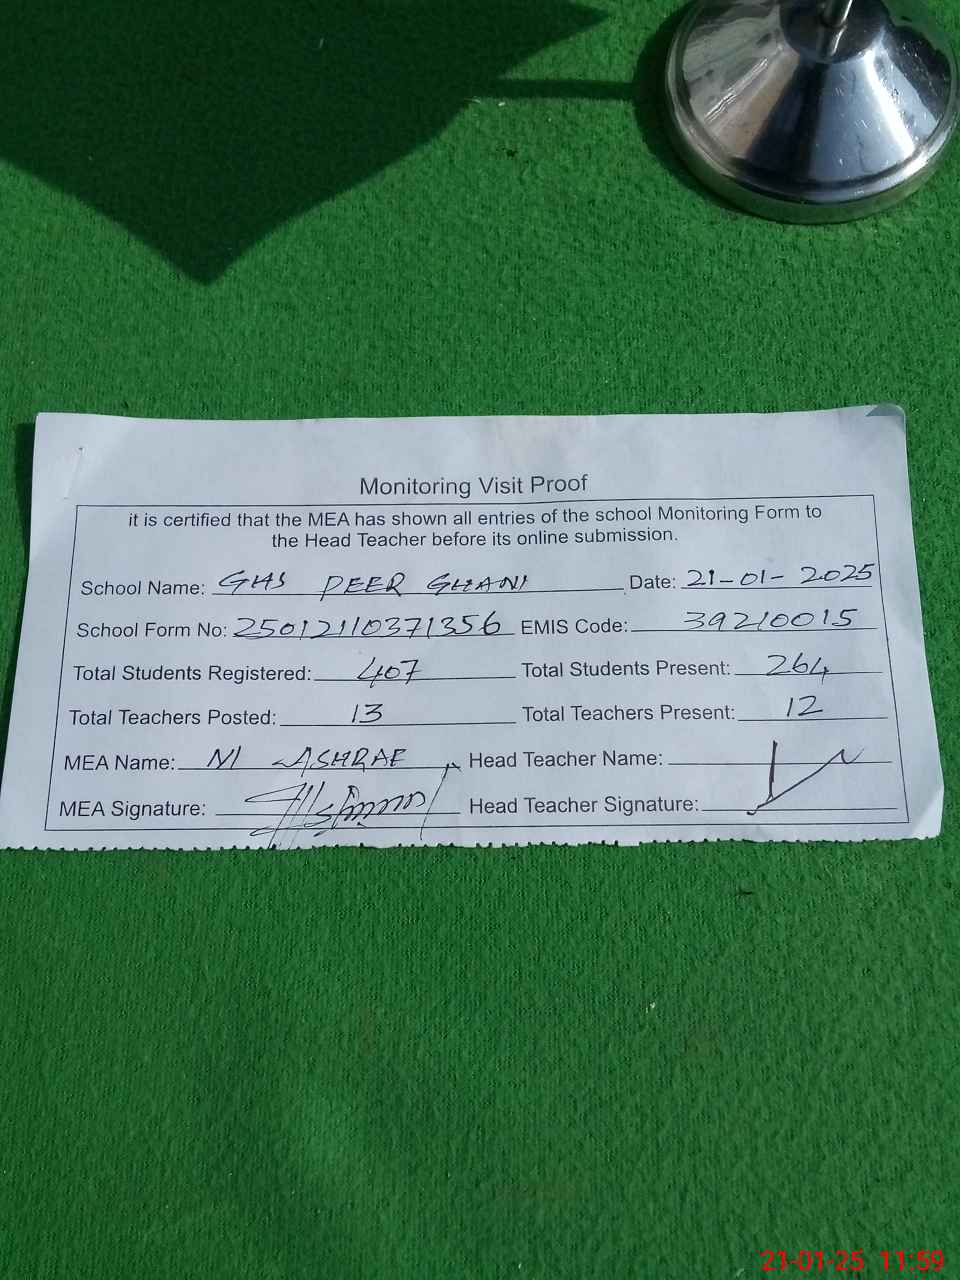 Monitoring Visit Proof
it is certified that the MEA has shown all entries of the school Monitoring Form to
the Head Teacher before its online submission.
School Name: GHS PEER GHANI Date: 21-01-2025
School Form No: 25012110371356 EMIS Code: 39210015
Total Students Registered: 407 Total Students Present: 264
Total Teachers Posted: 13 Total Teachers Present: 12
MEA Name: M ASHRAF Head Teacher Name:
MEA Signature: Head Teacher Signature:
21-01-25 11:59